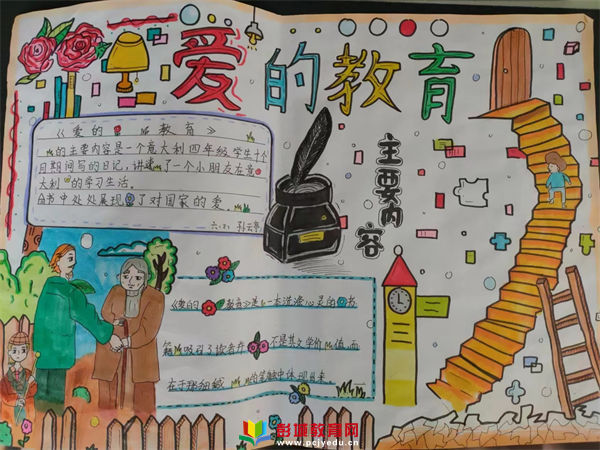 爱的教育
主要内容
《爱的教育》
的主要内容是一个意大利四年级学生十个
月期间写的日记,讲述了一个小朋友在意
大利的学习生活。
书中处处展现了对国家的爱
《爱的教育》是一本洗涤心灵的书
籍 吸引了读者并不是其文学价值,而
在于那细腻的笔触中体现出来
彭城教育网
www.pcjyedu.cn